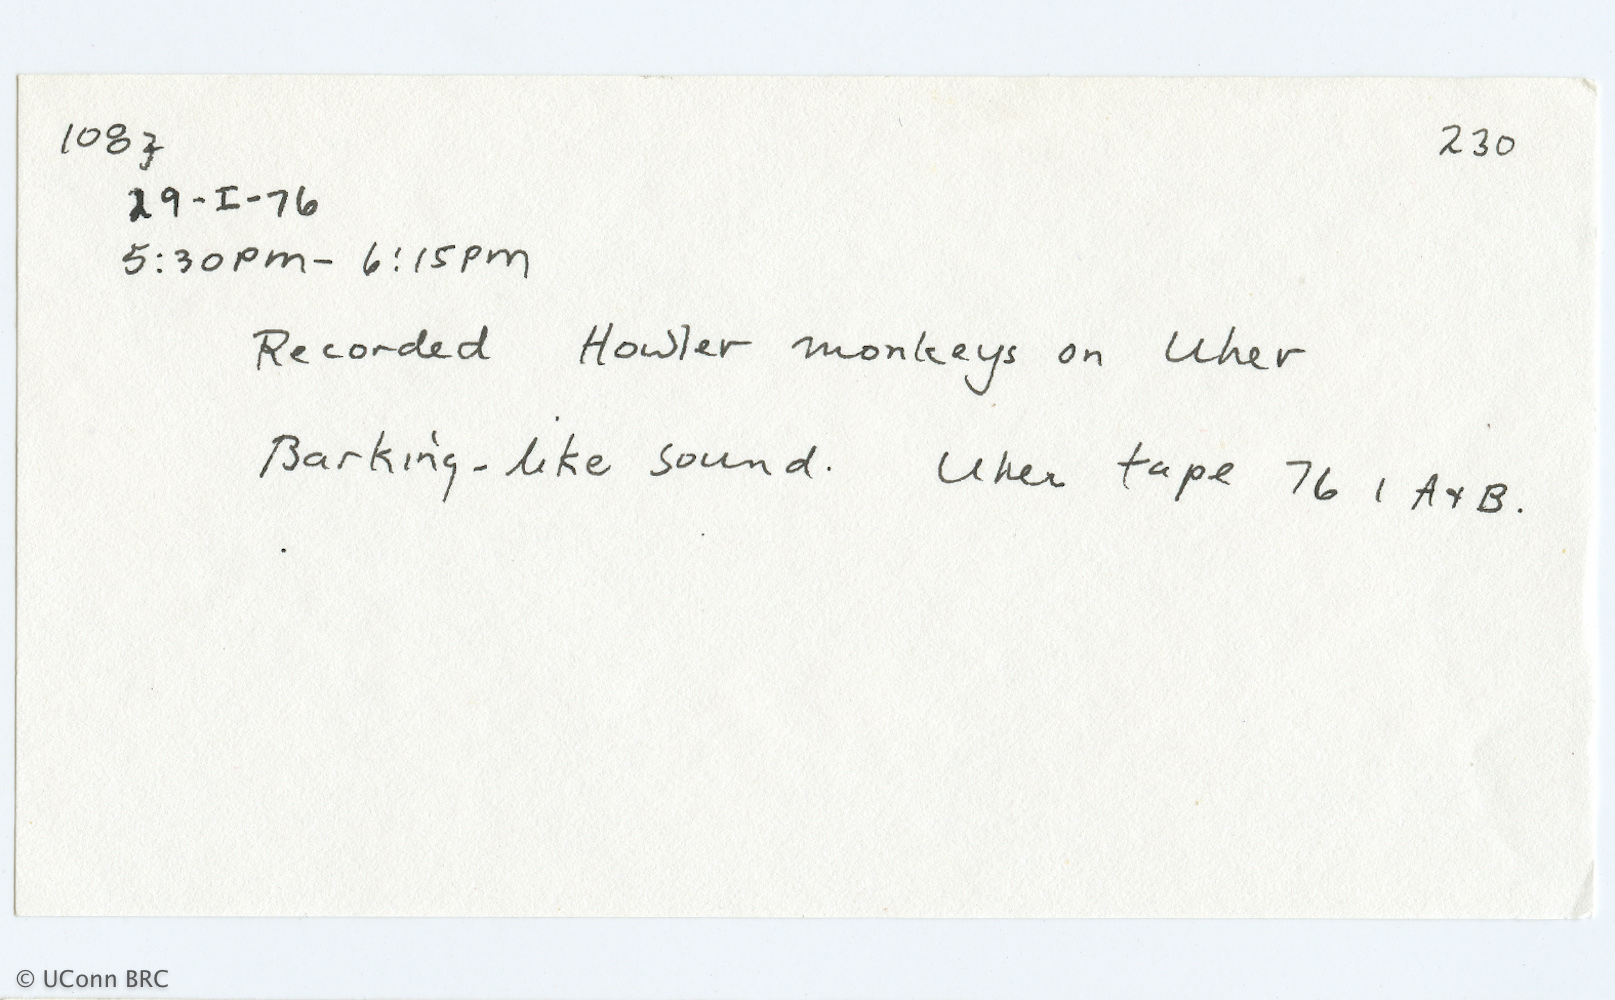 108z 230
29-I-76
5:30pm- 6:15pm
Recorded Howler monkeys on Uher
Barking-like sound. Uher tape 76 1 A+B.
© UConn BRC